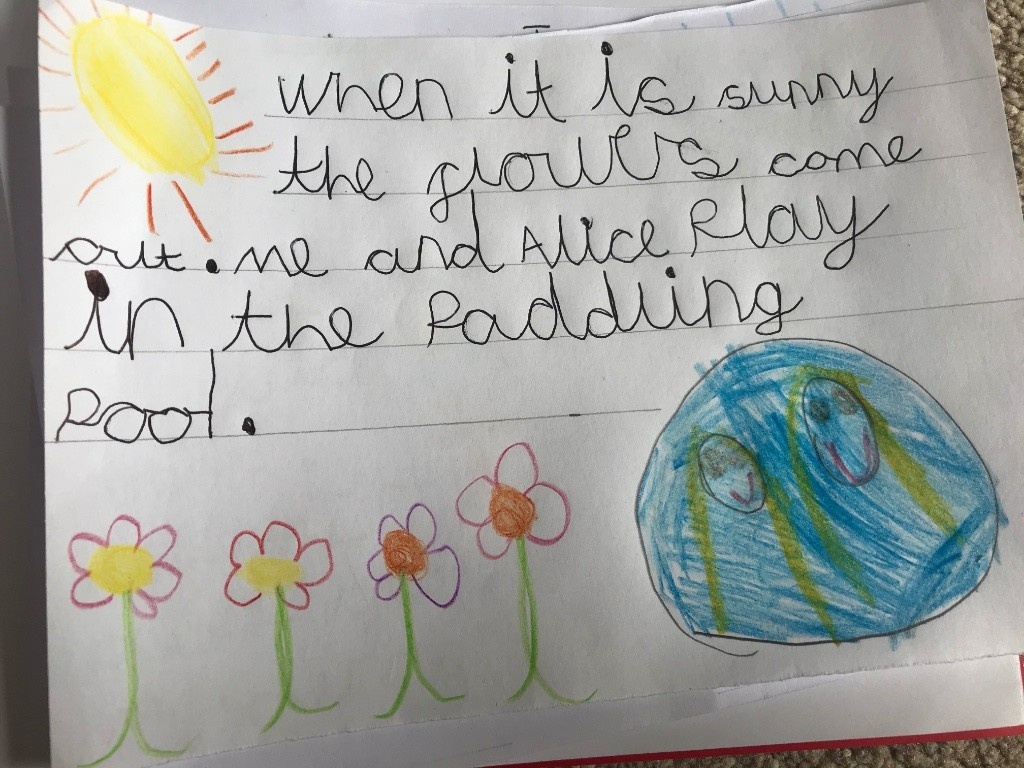 when it is sunny
the flowers come
out. me and Alice Play
in the Paddling
Pool.